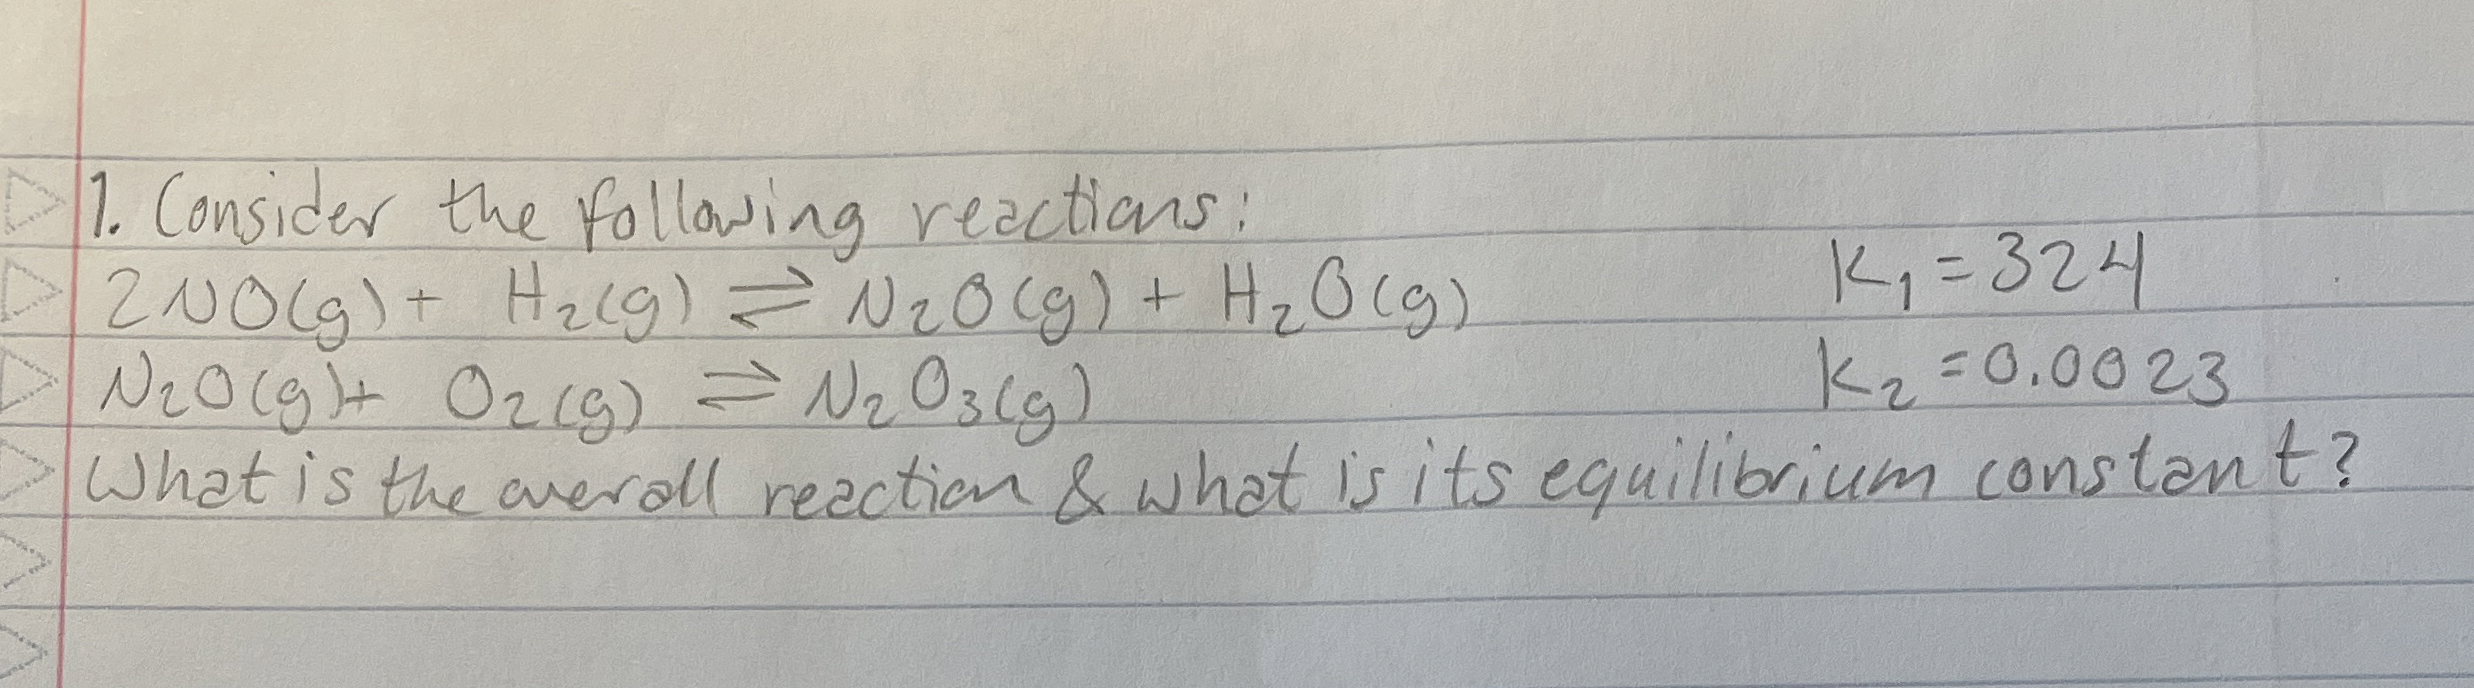 1. Consider the following reactions:
2NO(g) + H₂(g) ⇌ N₂O(g) + H₂O(g) K₁ = 324
N₂O(g) + O₂(g) ⇌ N₂O₃(g) K₂ = 0.0023
What is the overall reaction & what is its equilibrium constant?